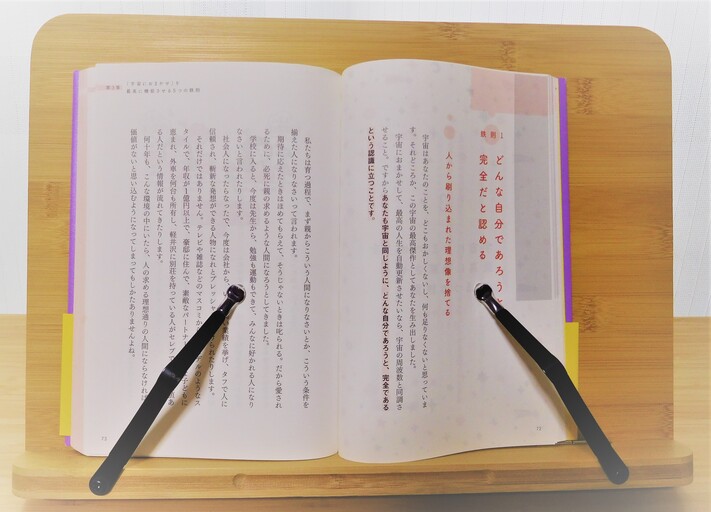 法則1
どんな自分であろうと
完全だと認める
人から刷り込まれた理想像を捨てる
宇宙はあなたのことを、どこもおかしくないし、何も足りなくないと思っていま
す。それどころか、この宇宙の最高傑作としてあなたを生み出しました。
宇宙におまかせして、最高の人生を自動更新させたいなら、宇宙の周波数と同調さ
せること。ですからあなたも宇宙と同じように、どんな自分であろうと、完全である
という認識に立つことです。
私たちは育つ過程で、まず親からこういう人間になりなさいとか、こういう条件を
揃えた人になりなさいって言われます。
期待に応えたときはほめてもらえて、そうじゃないときは叱られる。だから愛され
るために、必死に親の求めるような人間になろうとしてきました。
学校に入ると、今度は先生から、勉強も運動もできて、みんなに好かれる人になり
なさいと言われたりします。
社会人になったらなったで、今度は会社から、績を挙げ、タフで人に
信頼され、斬新な発想ができる人物になれとプレッシャられたりします。
それだけではありません。テレビや雑誌などのマスコミかルのようなス
タイルで、年収が1億円以上で、豪邸に住んで、素敵なパートナ子どもに
恵まれ、外車を何台も所有し、軽井沢に別荘を持っている人がセレブあ
る人だという情報が流れてきたりします。
何十年も、こんな環境の中にいたら、人の求める理想通りの人間にならなければ
価値がないと思い込むようになってしまってもしかたありませんよね。
13